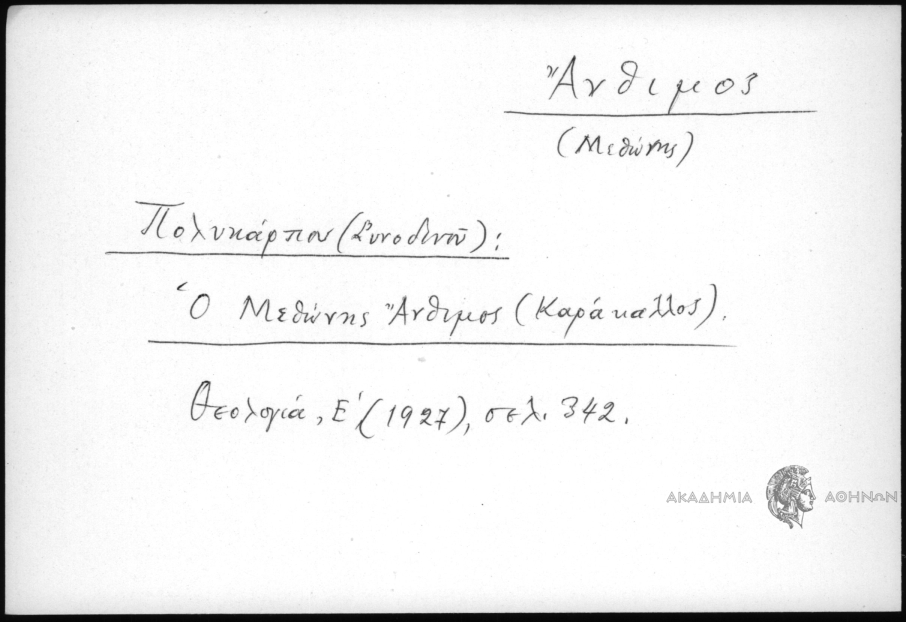 Ἄνθιμος
(Μεθώνης)
Πολυκάρπου (Συνοδινοῦ):
Ὁ Μεθώνης Ἄνθιμος (Καράκαλλος).
Θεολογιά, Ε' (1927), σελ. 342.
ΑΚΑΔΗΜΙΑ ΑΘΗΝΩΝ